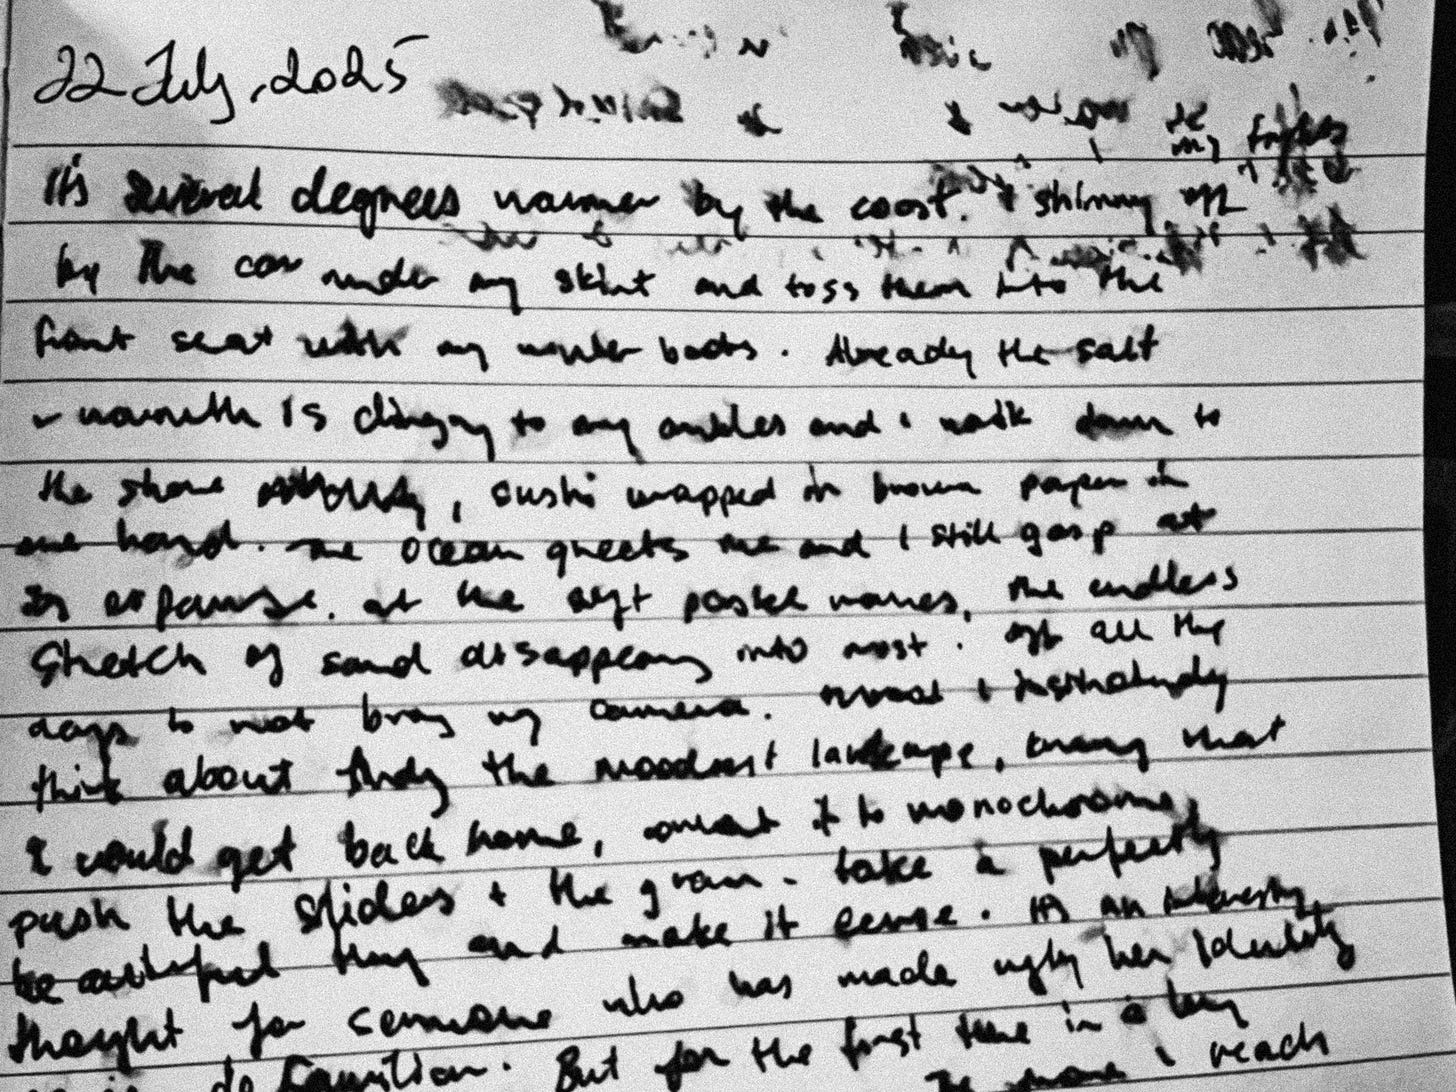 22 July, 2025
It's several degrees warmer by the coast. I shimmy off my tights
by the car under my skirt and toss them into the
front seat with my winter boots. Already the salt
warmth is clinging to my ankles and I walk down to
the shore, sushi wrapped in brown paper in
one hand. The ocean greets me and I still gasp at
its expanse. at the soft pastel waves, the endless
stretch of sand disappearing into mist. Of all the
days to not bring my camera. I instinctively
think about finding the moodiest landscape, knowing that
I would get back home, convert it to monochrome,
push the sliders & the grain. take a perfectly
beautiful thing and make it eerie. It's an interesting
thought for someone who has made ugly her identity
But for the first time in a long
I reach